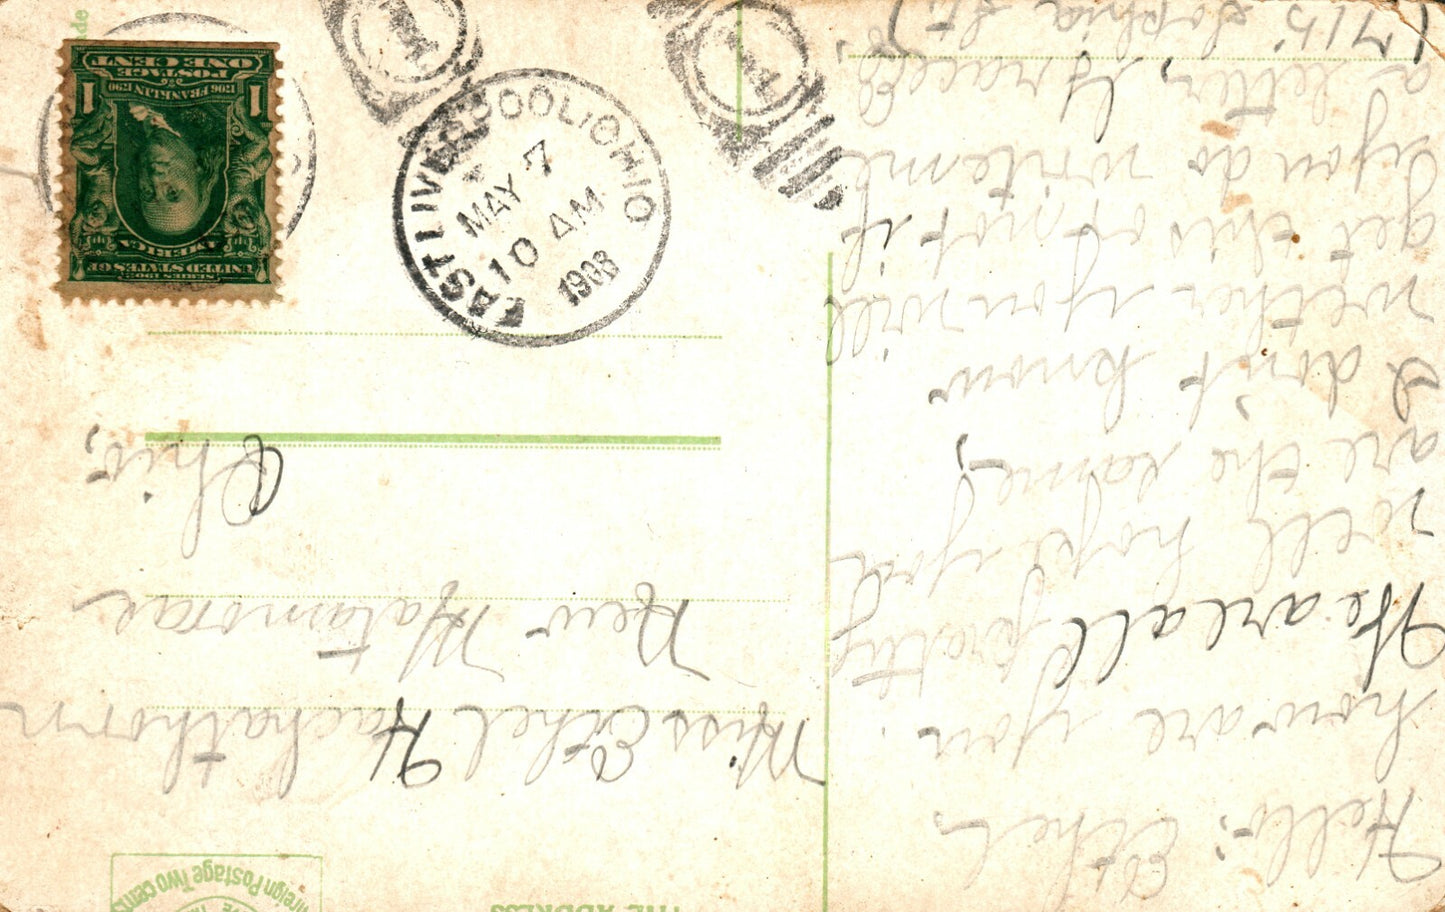 Hello, Ethel
how are you.
We are all pretty
well hope you
are the same,
I don't know
wether you will
get this or not if
you do write me
a letter, Grace
(715 Sophia St)
THE ADDRESS
Foreign Postage Two cents
Miss Ethel Hachathorn
New Matamorae
Ohio,
EAST LIVERPOOL, OHIO
MAY 7
10 AM
1908
SERIES 1902
UNITED STATES OF
AMERICA
1706 FRANKLIN 1790
1 1
POSTAGE
ONE CENT